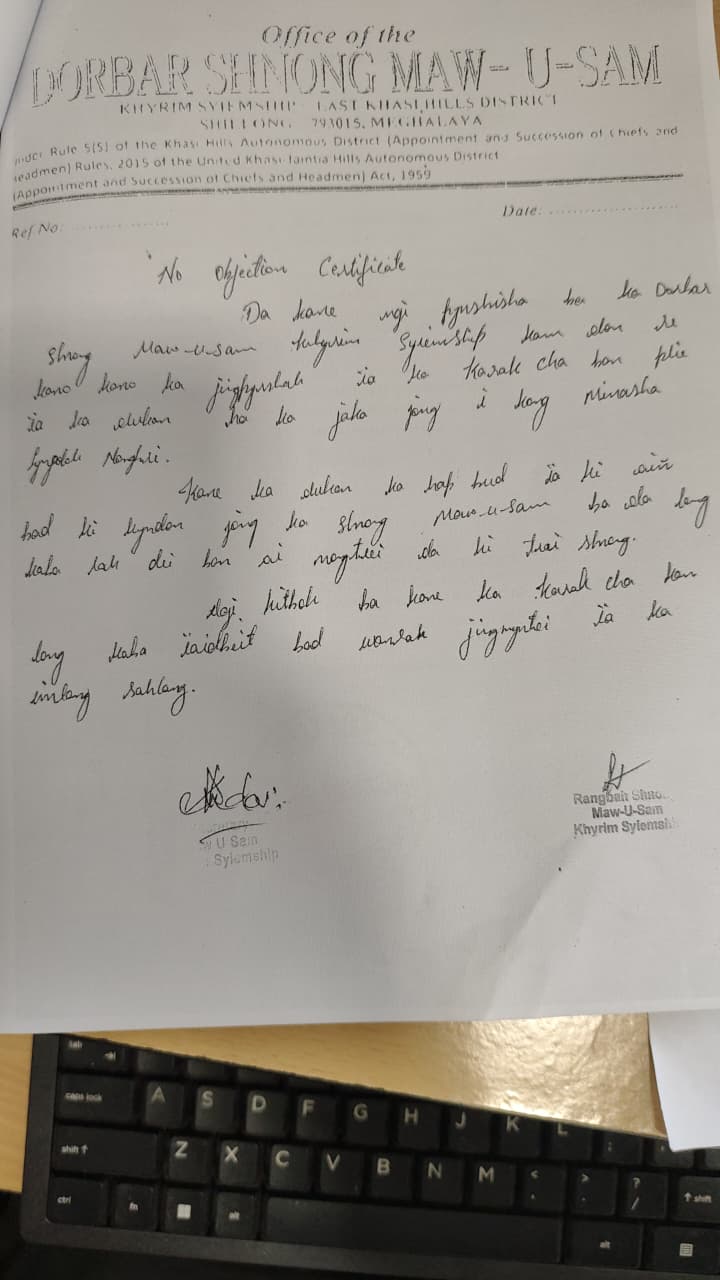 Office of the
DORBAR SHNONG MAW- U-SAM
KHYRIM SYIEMSHIP EAST KHASI HILLS DISTRICT
SHILLONG 793015, MEGHALAYA
Rule 5(5) of the Khasi Hills Autonomous District (Appointment and Succession of Chiefs and
Headmen) Rules, 2015 of the United Khasi Jaintia Hills Autonomous District
(Appointment and Succession of Chiefs and Headmen) Act, 1959
Ref No: ..................
Date: ......................
No Objection Certificate
Da kane ngi pynshisha ba ka Dorbar
Shnong Maw-u-sam Syiemship kam don
kano kano ka jingpyrshah ïa ka Karak cha ban plie
ïa ka dukan ha ka jaka jong i kong Minasha
Kane ka dukan ka hap bud ïa ki aiñ
bad ki kyndon jong ka Shnong Maw-u-sam ba da long
kaba lah dei ban ai da ki trai shnong.
Ngi kitboh ba kane ka Karak cha kan
long kaba ïaidbeit bad wanrah jingmyntoi ïa ka
imlang sahlang.
U Sam
Syiemship
Rangbah
Maw-U-Sam
Khyrim
tab
caps lock
A S D F G H J K L
shift ↑
Z X C V B N M < > ?
. /
↑ shift
ctrl
fn
alt
alt